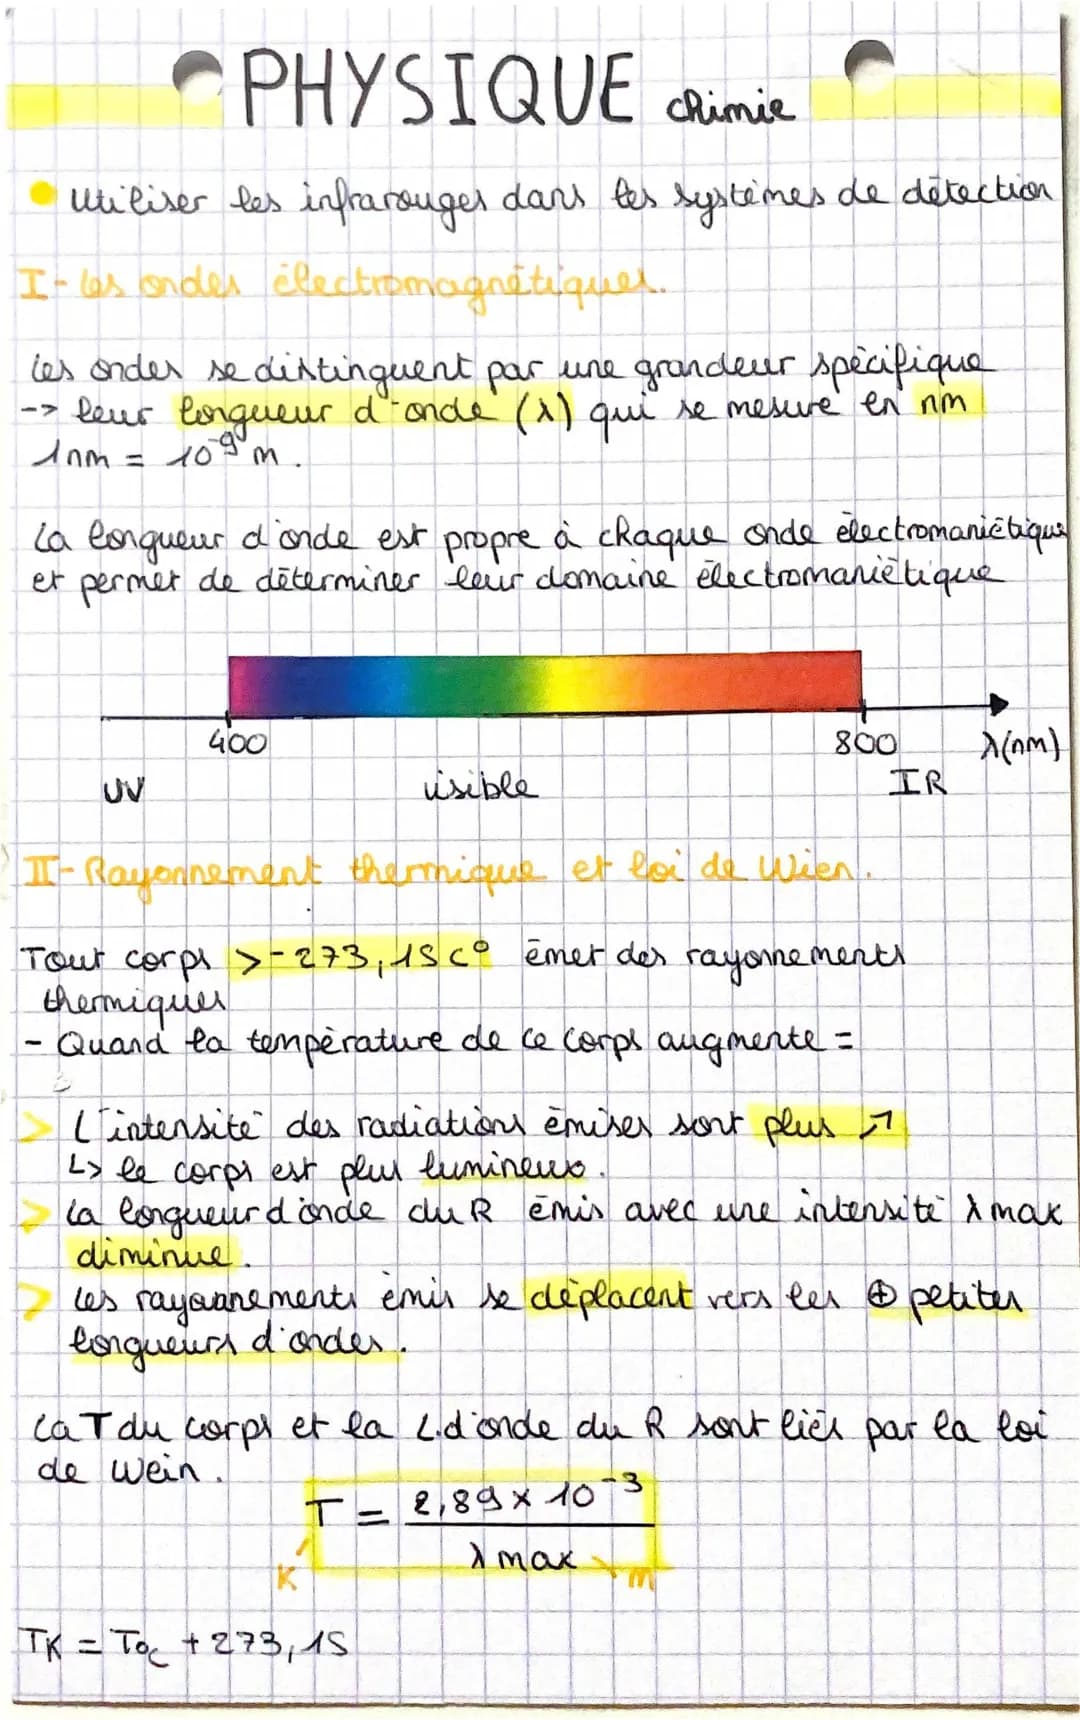 PHYSIQUE chimie
Utiliser les infrarouges dans les systèmes de détection
I- Les ondes électromagnétiques.
Les ondes se distinguent par une grandeur spécifique
-> leur longueur d'onde (λ) qui se mesure en nm
1nm = 10⁻⁹ m.
La longueur d'onde est propre à chaque onde électromaniétique
et permet de déterminer leur domaine électromaniétique
400 800 λ(nm)
UV visible IR
II- Rayonnement thermique et loi de Wien.
Tout corps >-273,15 C° émet des rayonnements
thermiques
- Quand la température de ce corps augmente =
> L'intensité des radiations émises sont plus ↗
↳ le corps est plus lumineux.
> La longueur d'onde du R émis avec une intensité λ max
diminue.
> Les rayonnements émis se déplacent vers les ⊕ petites
longueurs d'ondes.
La T du corps et la L.d'onde du R sont liés par la loi
de Wein.
T = 2,89 x 10⁻³
λ max
K m
TK = T°C + 273,15